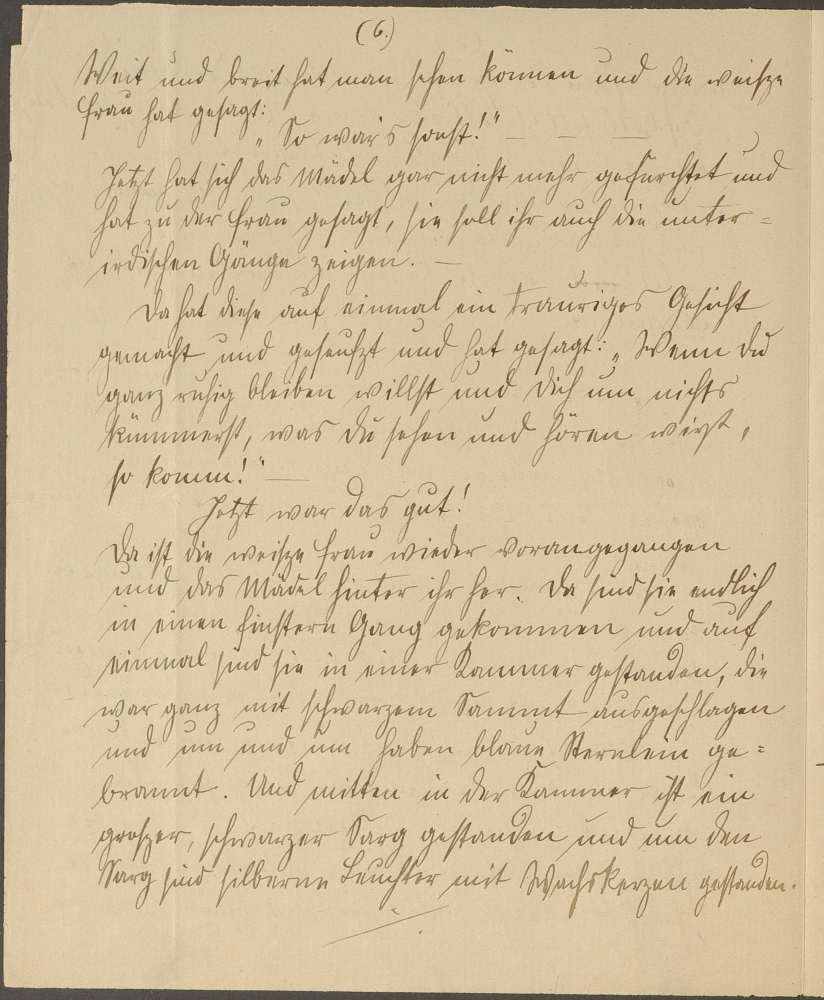 (6.)
Weit und breit hat man sehen können und die weisze
Frau hat gesagt:
„So war's sonst!" — — —
Jetzt hat sich das Mädel gar nicht mehr gefürchtet und
hat zu der Frau gesagt, sie soll ihr auch die unter=
irdischen Gänge zeigen. —
Da hat diese auf einmal ein trauriges Gesicht
gemacht und geseufzt und hat gesagt: „Wenn du
ganz ruhig bleiben willst und dich um nichts
kümmerst, was du sehen und hören wirst,
so komm!" —
Jetzt war das gut!
Da ist die weisze Frau wieder vorangegangen
und das Mädel hinter ihr her. Da sind sie endlich
in einen finstern Gang gekommen und auf
einmal sind sie in einer Kammer gestanden, die
war ganz mit schwarzem Sammt ausgeschlagen
und um und um haben blaue Sternlein ge=
brannt. Und mitten in der Kammer ist ein
groszer, schwarzer Sarg gestanden und um den
Sarg sind silberne Leuchter mit Wachskerzen gestanden.